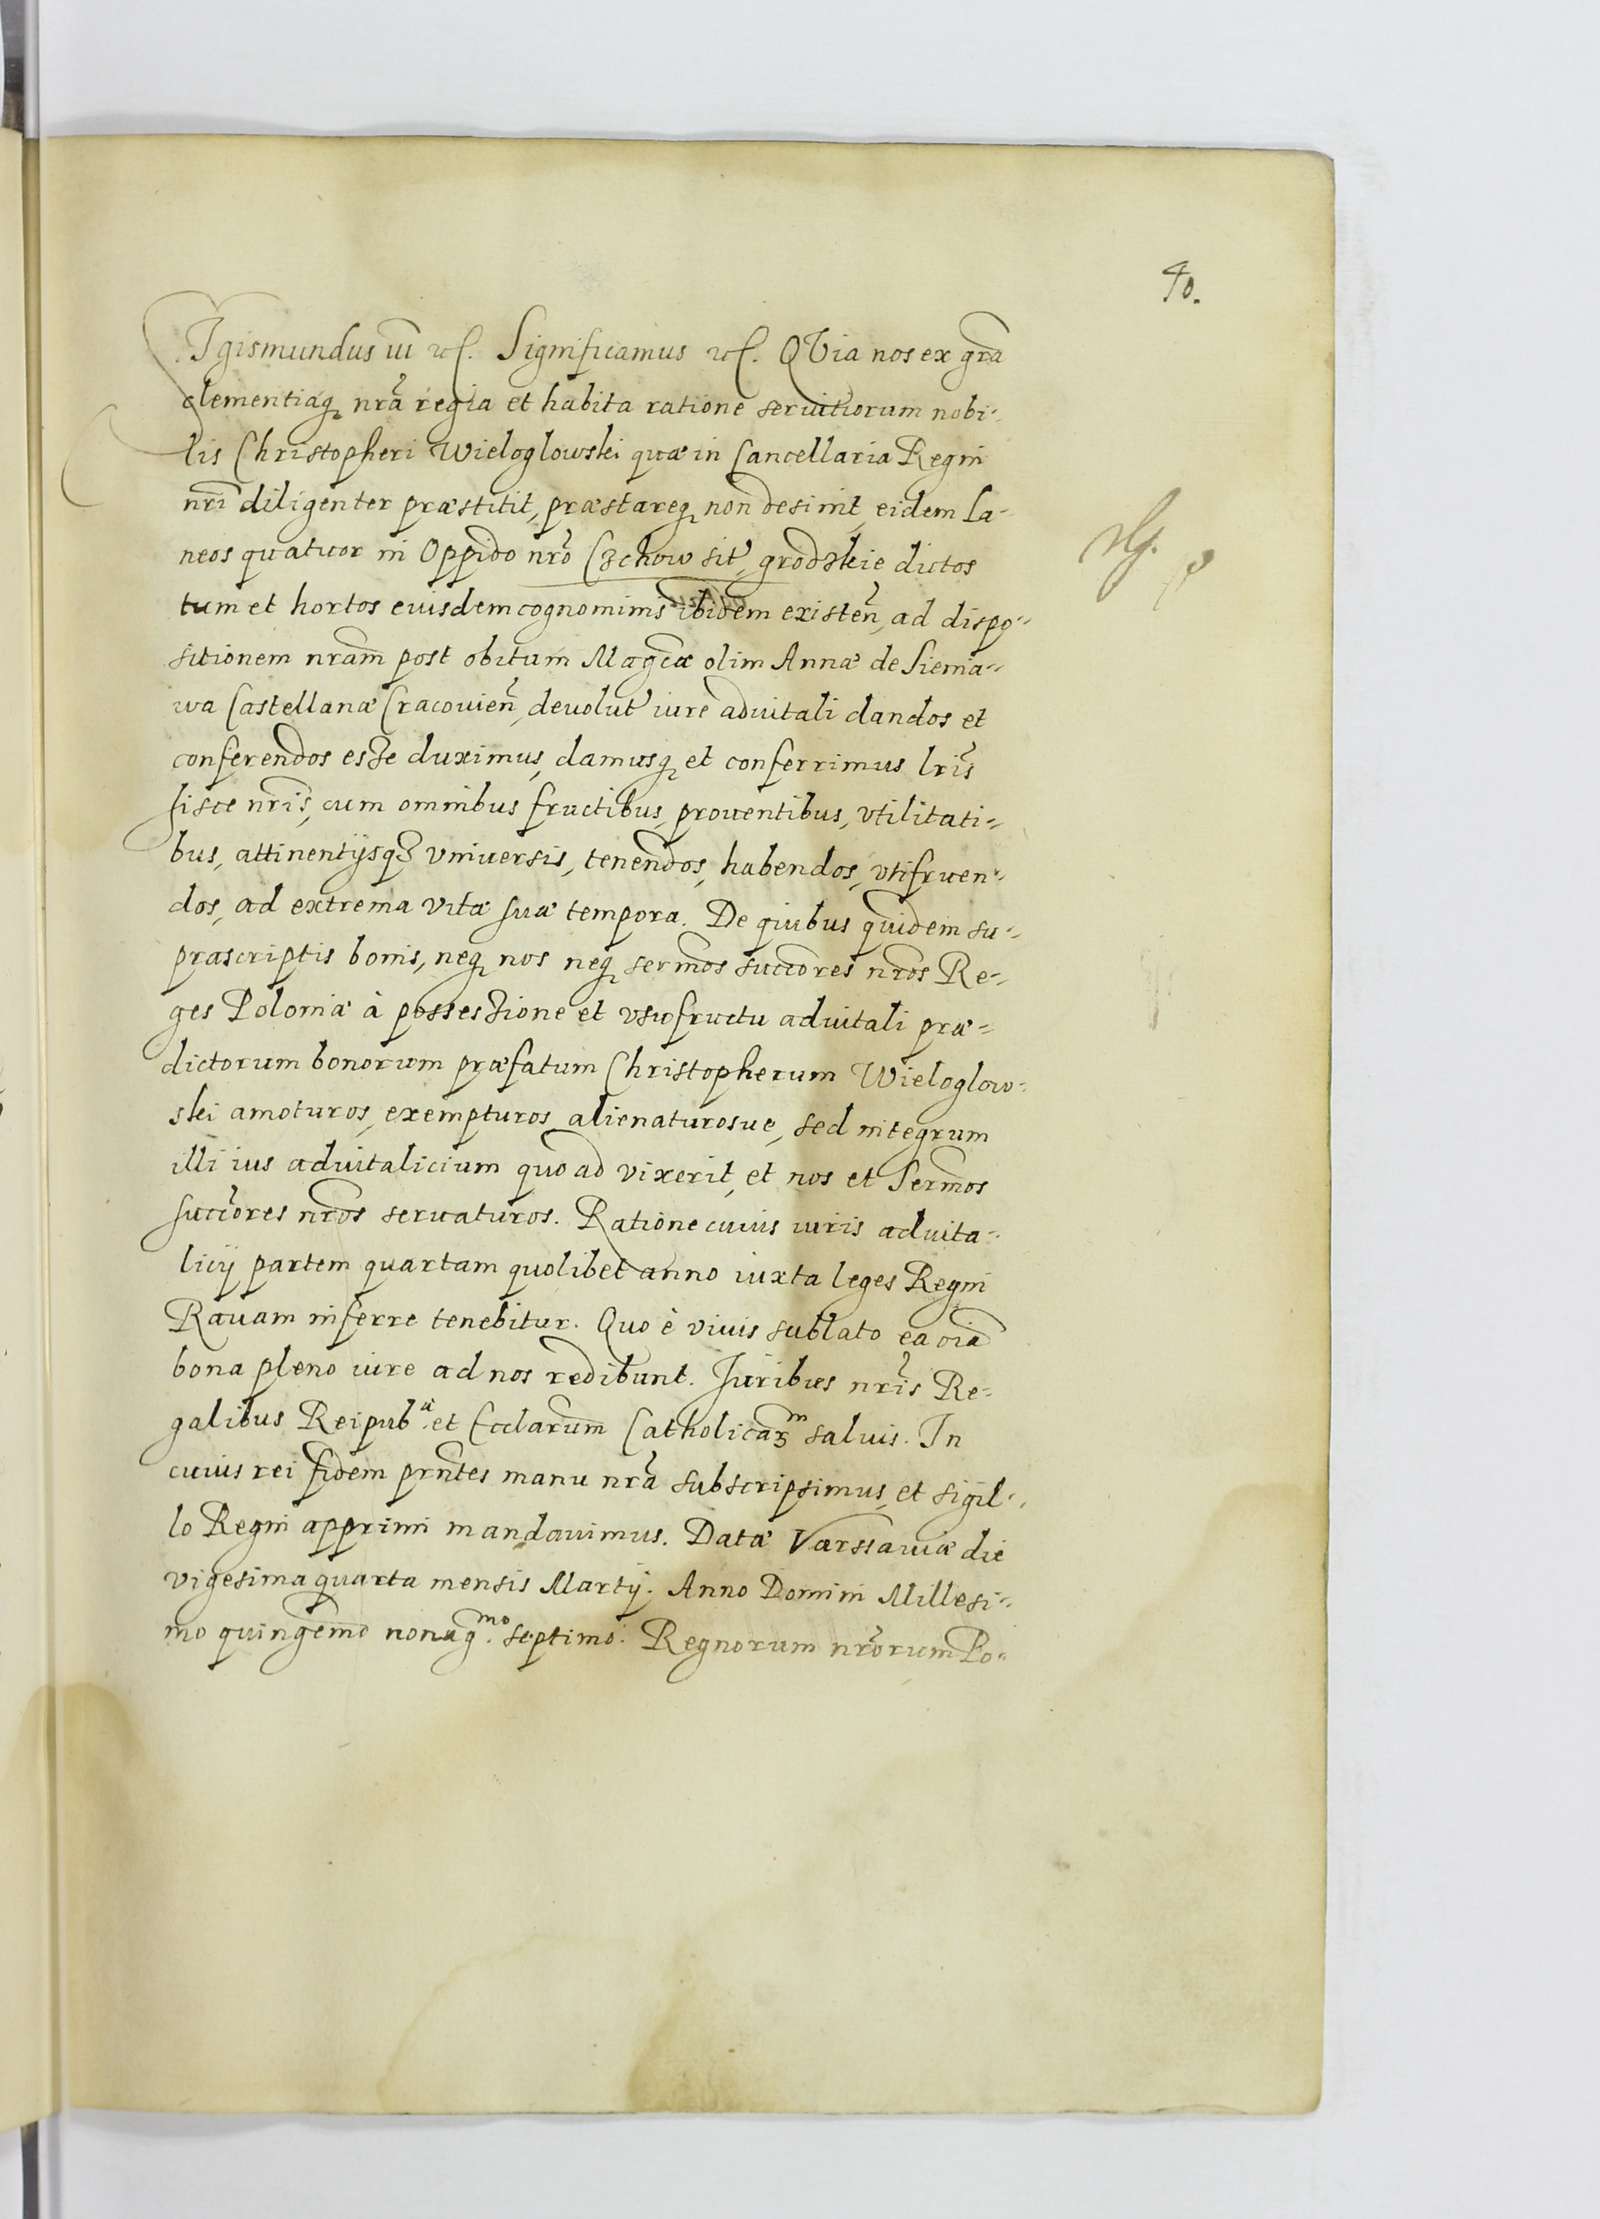 40.
Sigismundus III etc. Significamus etc. QVia nos ex gra͠
clementiaq, nra͠ regia et habita ratione seruitiorum nobi-
lis Christopheri Wieloglowski quæ in Cancellaria Regni
nri͠ diligenter præstitit, præstareq, non desinit, eidem La-
neos quatuor in Oppido nro͠ Czchow sit͠, grodzkie dictos
tum et hortos euisdem cognominis ibidem existen͠, ad dispo-
sitionem nram͠ post obitum Magcæ͠ olim Annæ de Sienia-
wa Castellanæ Cracouien͠, deuolut͠ iure aduitali dandos et
conferendos esse duximus, damusq, et conferrimus lris͠
hisce nris͠, cum omnibus fructibus, prouentibus, vtilitati-
bus, attinentijsq3 vniuersis, tenendos, habendos, vtifruen-
dos, ad extrema vitæ suæ tempora. De quibus quidem su-
prascriptis bonis, neq, nos neq, sermos͠ succores͠ nros͠ Re-
ges Poloniæ à possessione et vsufructu aduitali præ-
dictorum bonorum præfatum Christopherum Wieloglow-
ski amoturos, exempturos alienaturosue, sed integrum
illi ius aduitalicium quoad vixerit, et nos et Sermos͠
succores͠ nros͠ seruaturos. Ratione cuius iuris aduita-
licij partem quartam quolibet anno iuxta leges Regni
Rauam inferre tenebitur. Quo è viuis sublato ea oia͠
bona pleno iure ad nos redibunt. Juribus nris͠ Re-
galibus Reipub.æ et Ecclarum͠ Catholicarm saluis. In
cuius rei fidem prntes͠ manu nra͠ subscripsimus, et sigil-
lo Regni apprimi mandauimus. Datæ Varssauiæ die
vigesima quarta mensis Martij. Anno Domini Millesi-
mo quingemo͠ nonag.mo septimo. Regnorum nrorum͠ Po-